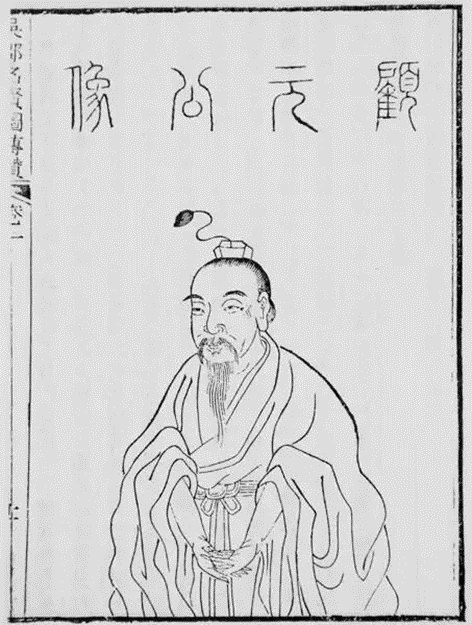 顧元公像
吳郡名賢圖傳贊
卷二